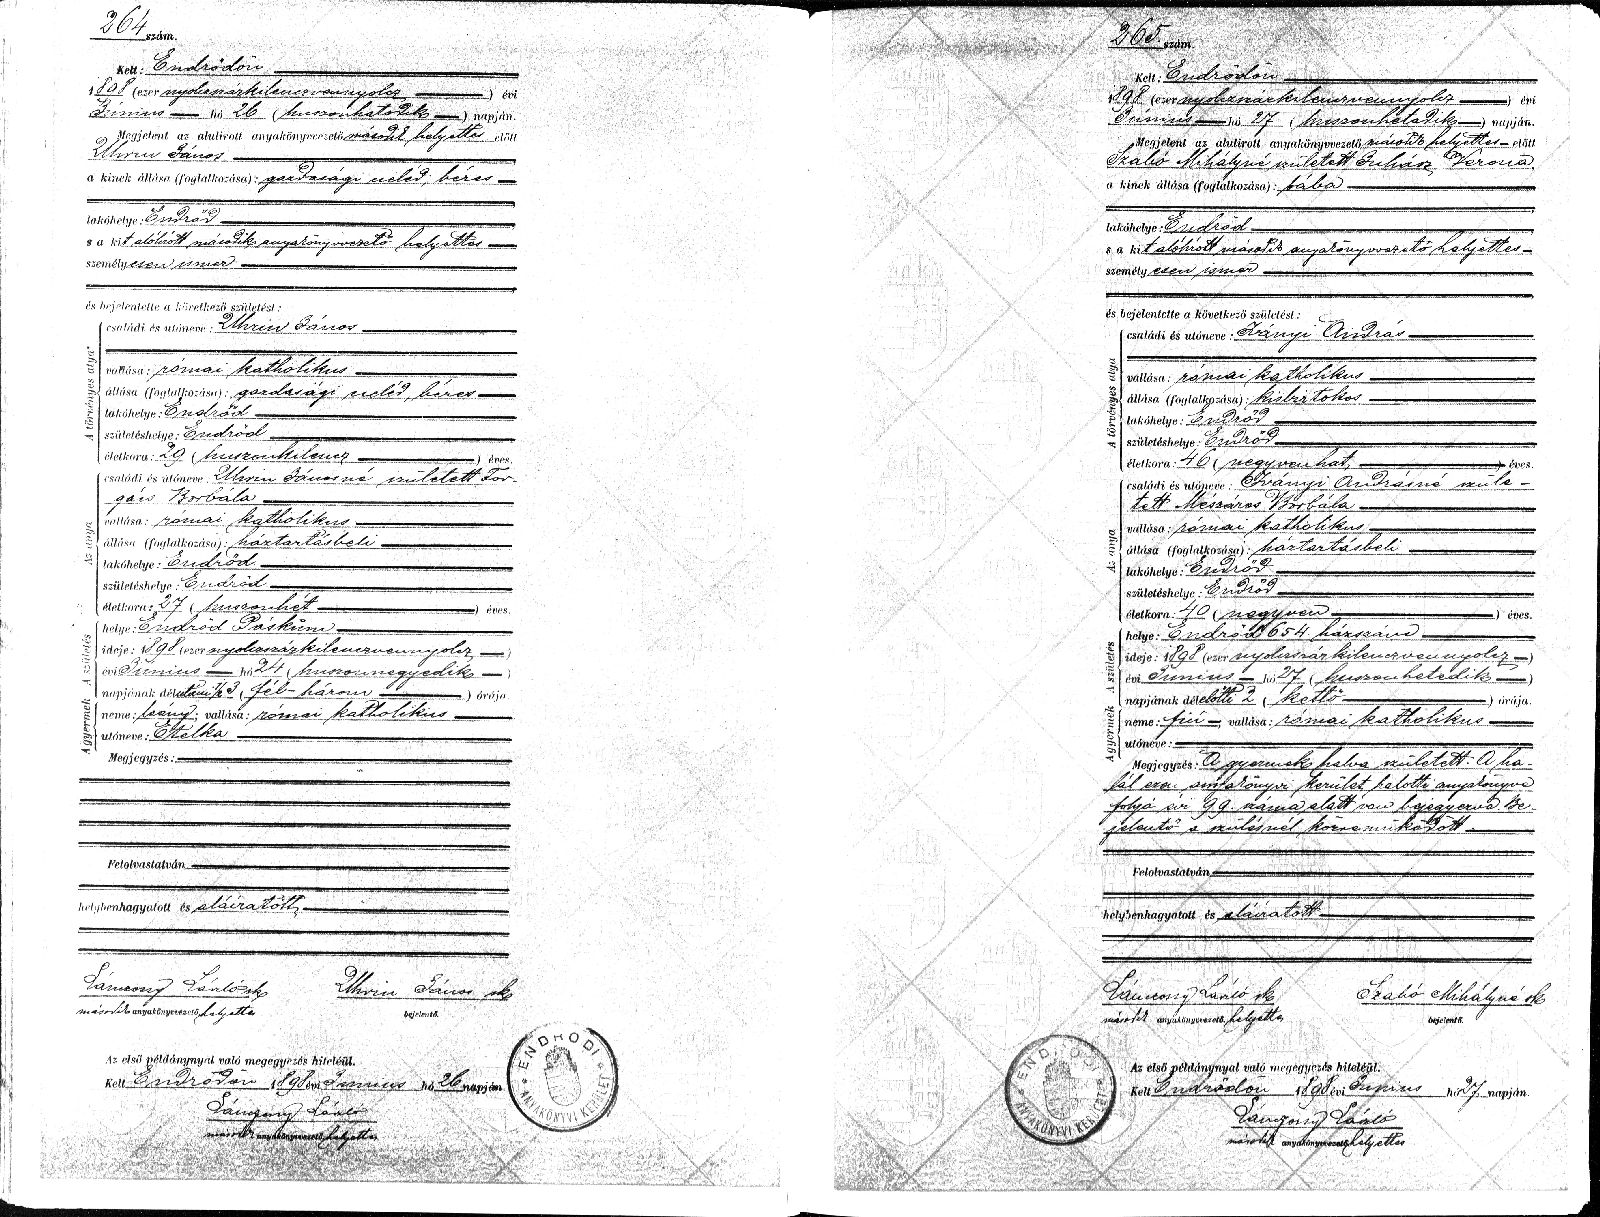 264 szám.
Kelt: Endrődön
1898 (ezer nyolczszázkilenczvennyolcz) évi
Június hó 26 (huszonhatodik) napján.
Megjelent az alulirott anyakönyvvezető második helyettes előtt
Uhrin János
a kinek állása (foglalkozása): gazdasági cseléd, béres
lakóhelye: Endrőd
s a kit alólírott második anyakönyvvezető helyettes
személyesen ismer
és bejelentette a következő születést:
A törvényes atya
családi és utóneve: Uhrin János
vallása: római katholikus
állása (foglalkozása): gazdasági cseléd, béres
lakóhelye: Endrőd
születéshelye: Endrőd
életkora: 29 (huszonkilencz) éves.
Az anya
családi és utóneve: Uhrin Jánosné született For-
gács Borbála
vallása: római katholikus
állása (foglalkozása): háztartásbeli
lakóhelye: Endrőd
születéshelye: Endrőd
életkora: 27 (huszonhét) éves.
A születés
helye: Endrőd Póskúm
ideje: 1898 (ezer nyolczszázkilenczvennyolcz)
évi Június hó 24 (huszonnegyedik)
napjának délutáni ½3 (fél-három) órája.
A gyermek
neme: leány; vallása: római katholikus
utóneve: Etelka
Megjegyzés:
Felolvastatván
helybenhagyatott és aláíratott
Lánczony László sk
második anyakönyvvezető helyettes
Uhrin János sk
bejelentő.
Az első példánynyal való megegyezés hiteléül.
Kelt Endrődön 1898 évi Június hó 26 napján
Lánczony László
második anyakönyvvezető helyettes
ENDRŐDI
ANYAKÖNYVI KERÜLET
265. szám.
Kelt: Endrődön
1898 (ezer nyolczszázkilenczvennyolcz) évi
Június hó 27 (huszonhetedik) napján.
Megjelent az alulirott anyakönyvvezető második helyettes előtt
Szabó Mihályné született Juhász Verona
a kinek állása (foglalkozása): bába
lakóhelye: Endrőd
s a kit alólírott második anyakönyvvezető helyettes
személyesen ismer
és bejelentette a következő születést:
A törvényes atya
családi és utóneve: Iványi András
vallása: római katholikus
állása (foglalkozása): kisbirtokos
lakóhelye: Endrőd
születéshelye: Endrőd
életkora: 46 (negyvenhat) éves.
Az anya
családi és utóneve: Iványi Andrásné szüle-
tett Mészáros Borbála
vallása: római katholikus
állása (foglalkozása): háztartásbeli
lakóhelye: Endrőd
születéshelye: Endrőd
életkora: 40 (negyven) éves.
A születés
helye: Endrőd 654 házszám
ideje: 1898 (ezer nyolczszázkilenczvennyolcz)
évi Június hó 27 (huszonhetedik)
napjának délelőtti 2 (kettő) órája.
A gyermek
neme: fiú vallása: római katholikus
utóneve:
Megjegyzés: A gyermek halva született. A ha-
lál ezen anyakönyvi kerület halotti anyakönyve
folyó évi 99. száma alatt van bejegyezve. Be-
jelentő a szülésnél közreműködött.
Felolvastatván
helybenhagyatott és aláíratott
Lánczony László sk
második anyakönyvvezető helyettes
Szabó Mihályné sk
bejelentő.
Az első példánynyal való megegyezés hiteléül.
Kelt Endrődön 1898 évi Június hó 27 napján.
Lánczony László
második anyakönyvvezető helyettes
ENDRŐDI
ANYAKÖNYVI KERÜLET